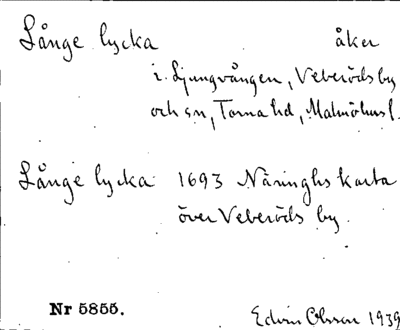 Långe lycka åker
i Ljungvången, Veberöds by
och sn, Torna hd, Malmöhus l.
Långe lycka 1693 Näringhs karta
över Veberöds by.
Nr 5855.
Edvin Olsson 1939